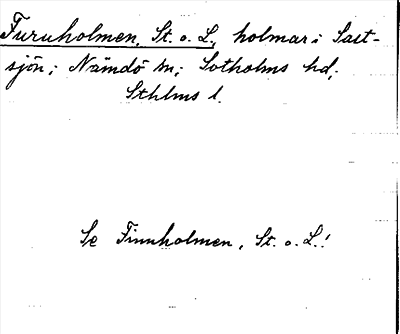 Furuholmen, St. o. L., holmar i Salt-
sjön; Nämdö sn; Sotholms hd,
Sthlms l.
Se Finnholmen, St. o. L.!